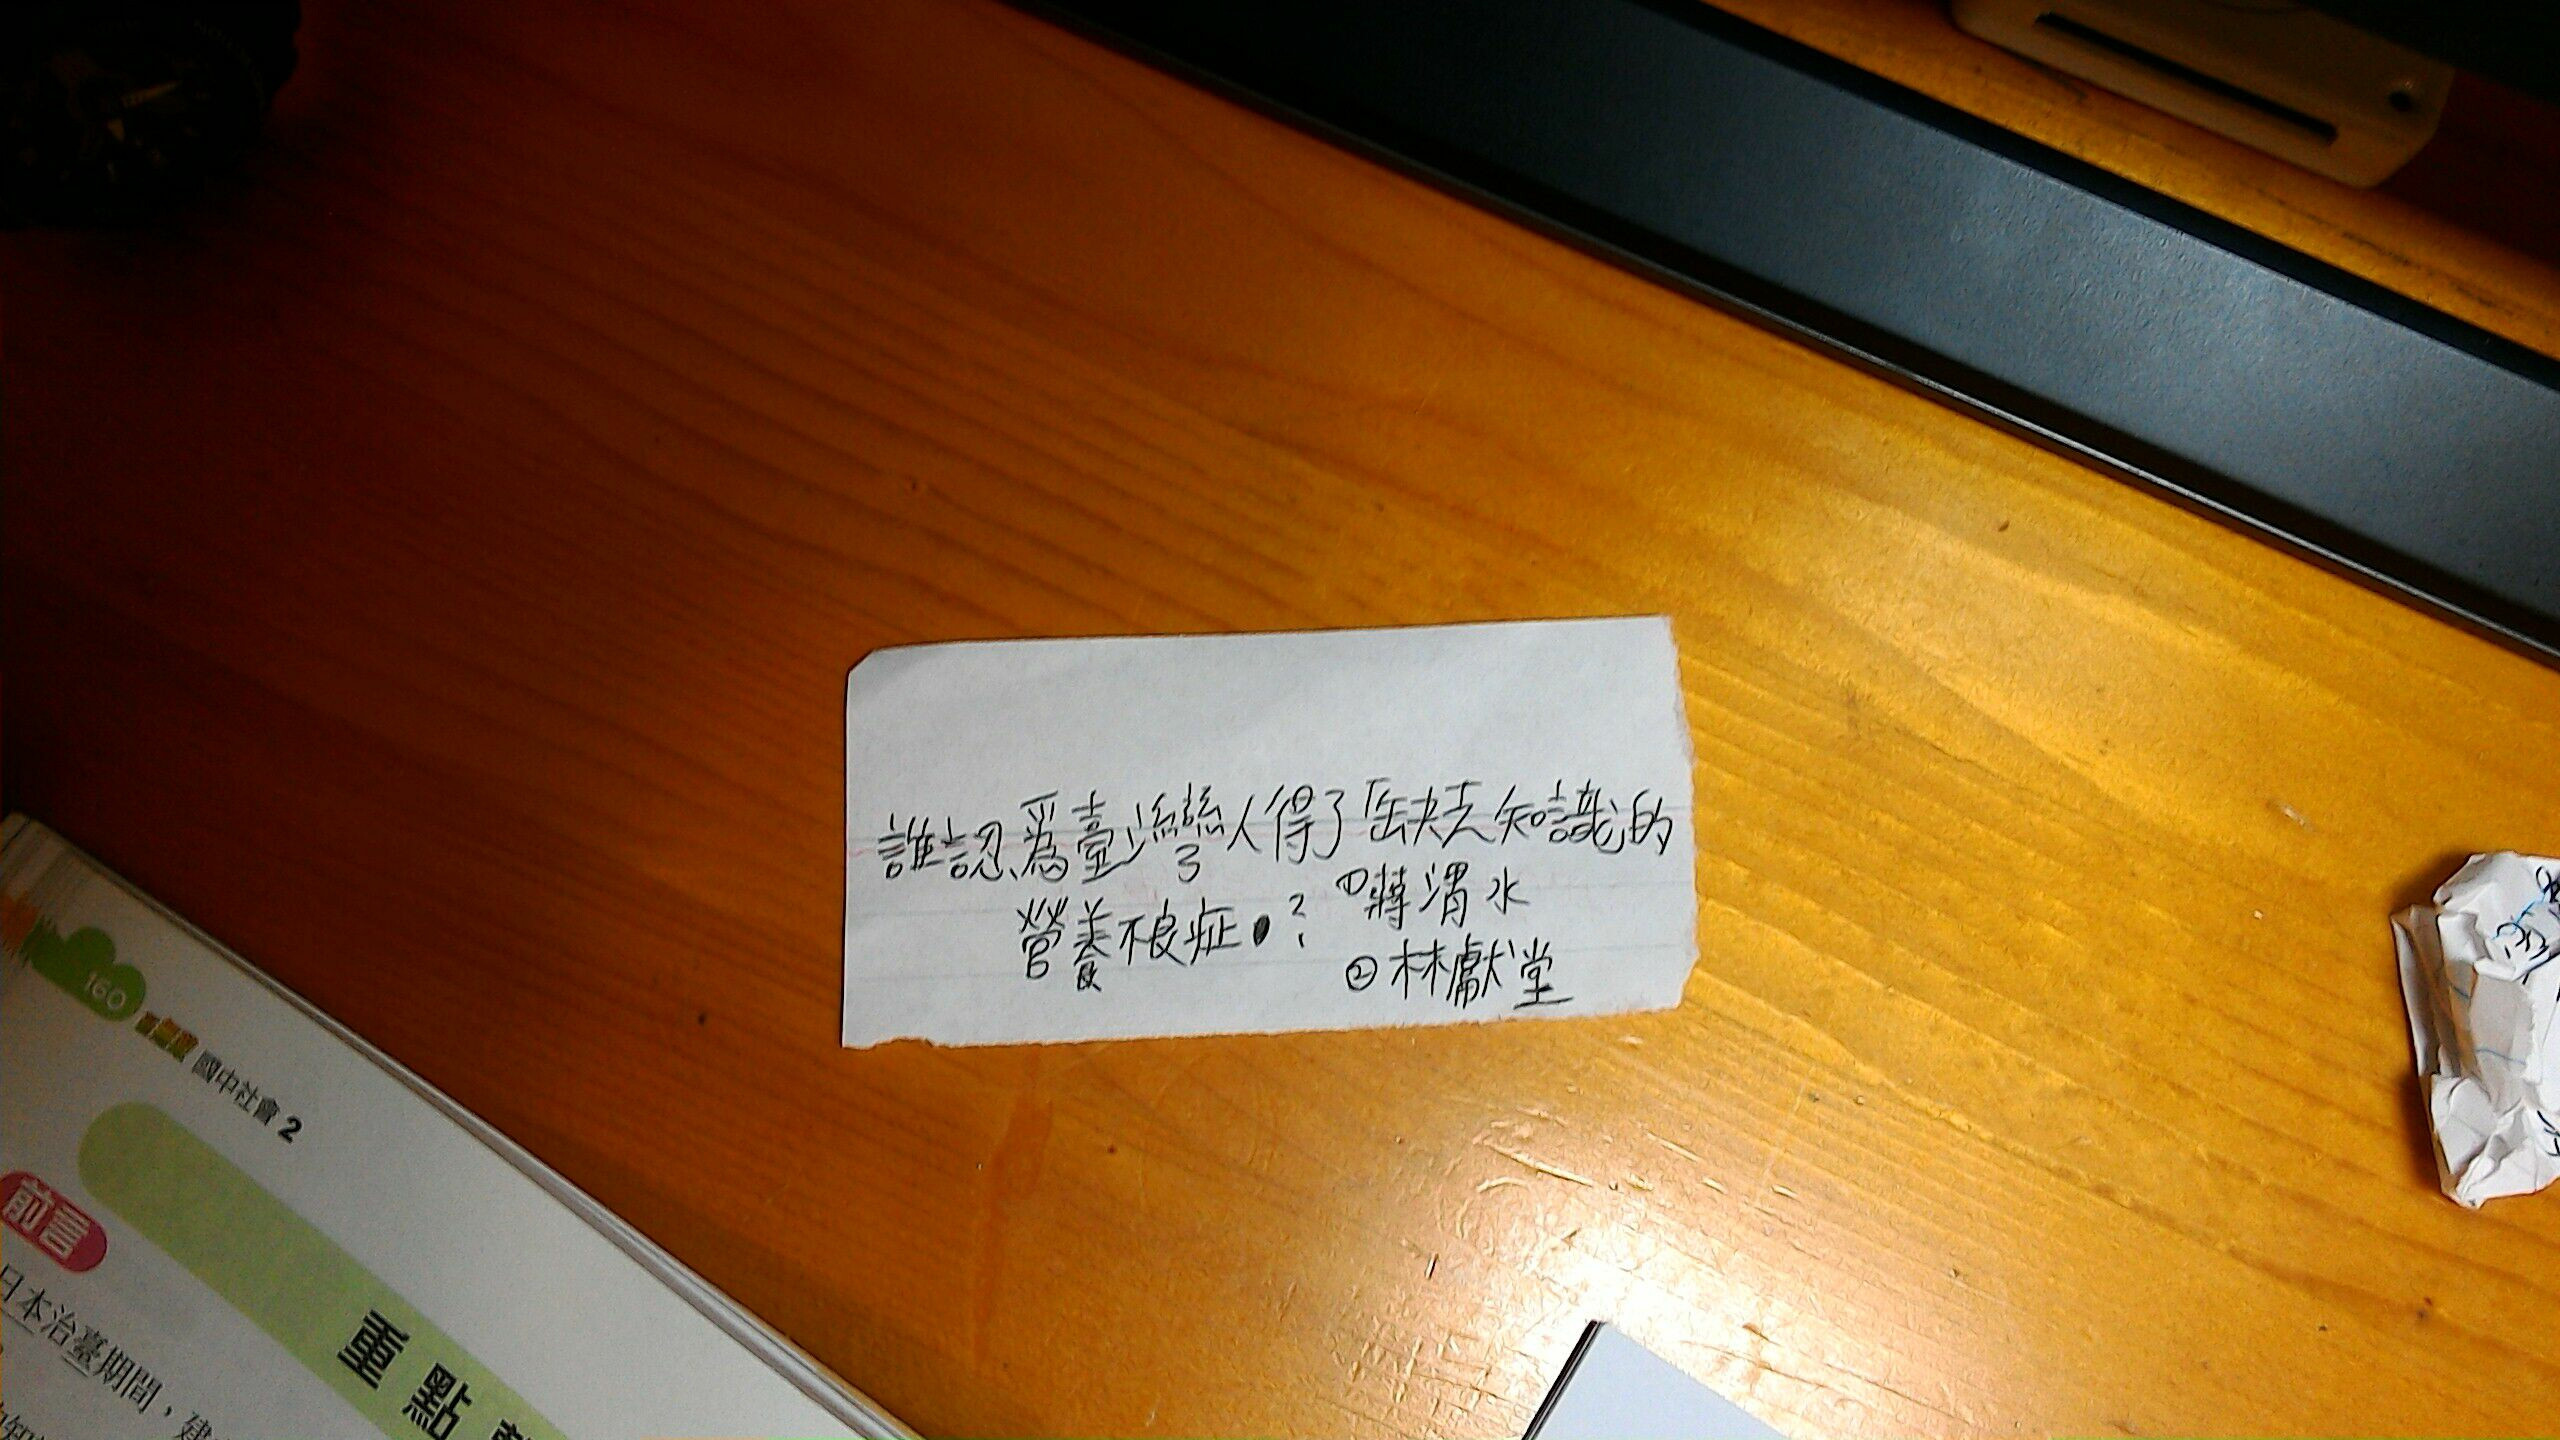 誰認為臺灣人得了缺乏知識的
營養不良症？
①蔣渭水
②林獻堂
160
國中社會 2
前言
重點
日本治臺期間，建